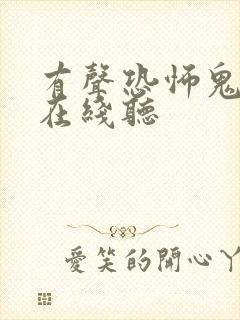 有聲恐怖鬼
在綫聽
愛笑的開心丫